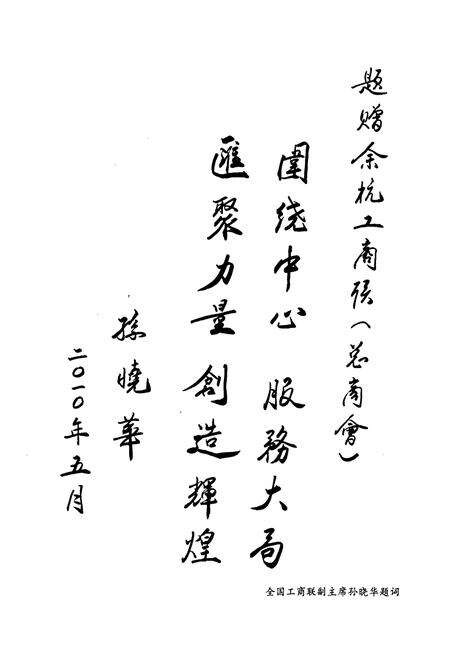 题赠余杭工商联（总商會）
圍绕中心 服務大局
匯聚力量 創造輝煌
孫曉華
二〇一〇年五月
全国工商联副主席孙晓华题词